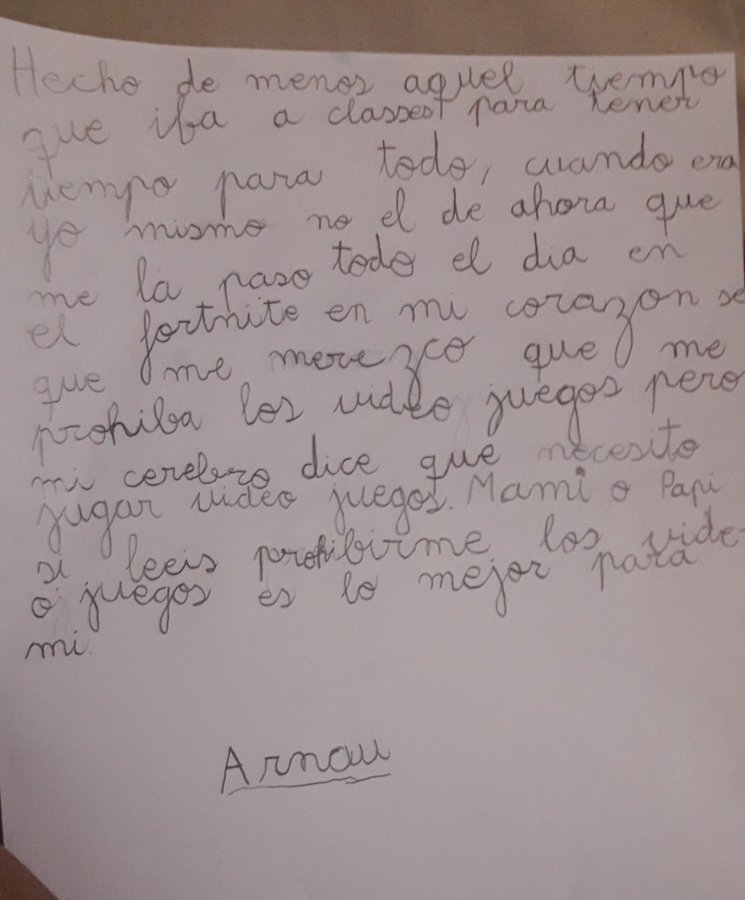 Hecho de menos aquel tiempo
que iba a classes para tener
tiempo para todo, cuando era
yo mismo no el de ahora que
me la paso todo el dia en
el fortnite en mi corazon se
que me merezco que me
prohiba los video juegos pero
mi cerebro dice que necesito
jugar video juegos. Mami o Papi
si leeis prohibirme los vide-
o juegos es lo mejor para
mi.
Arnau